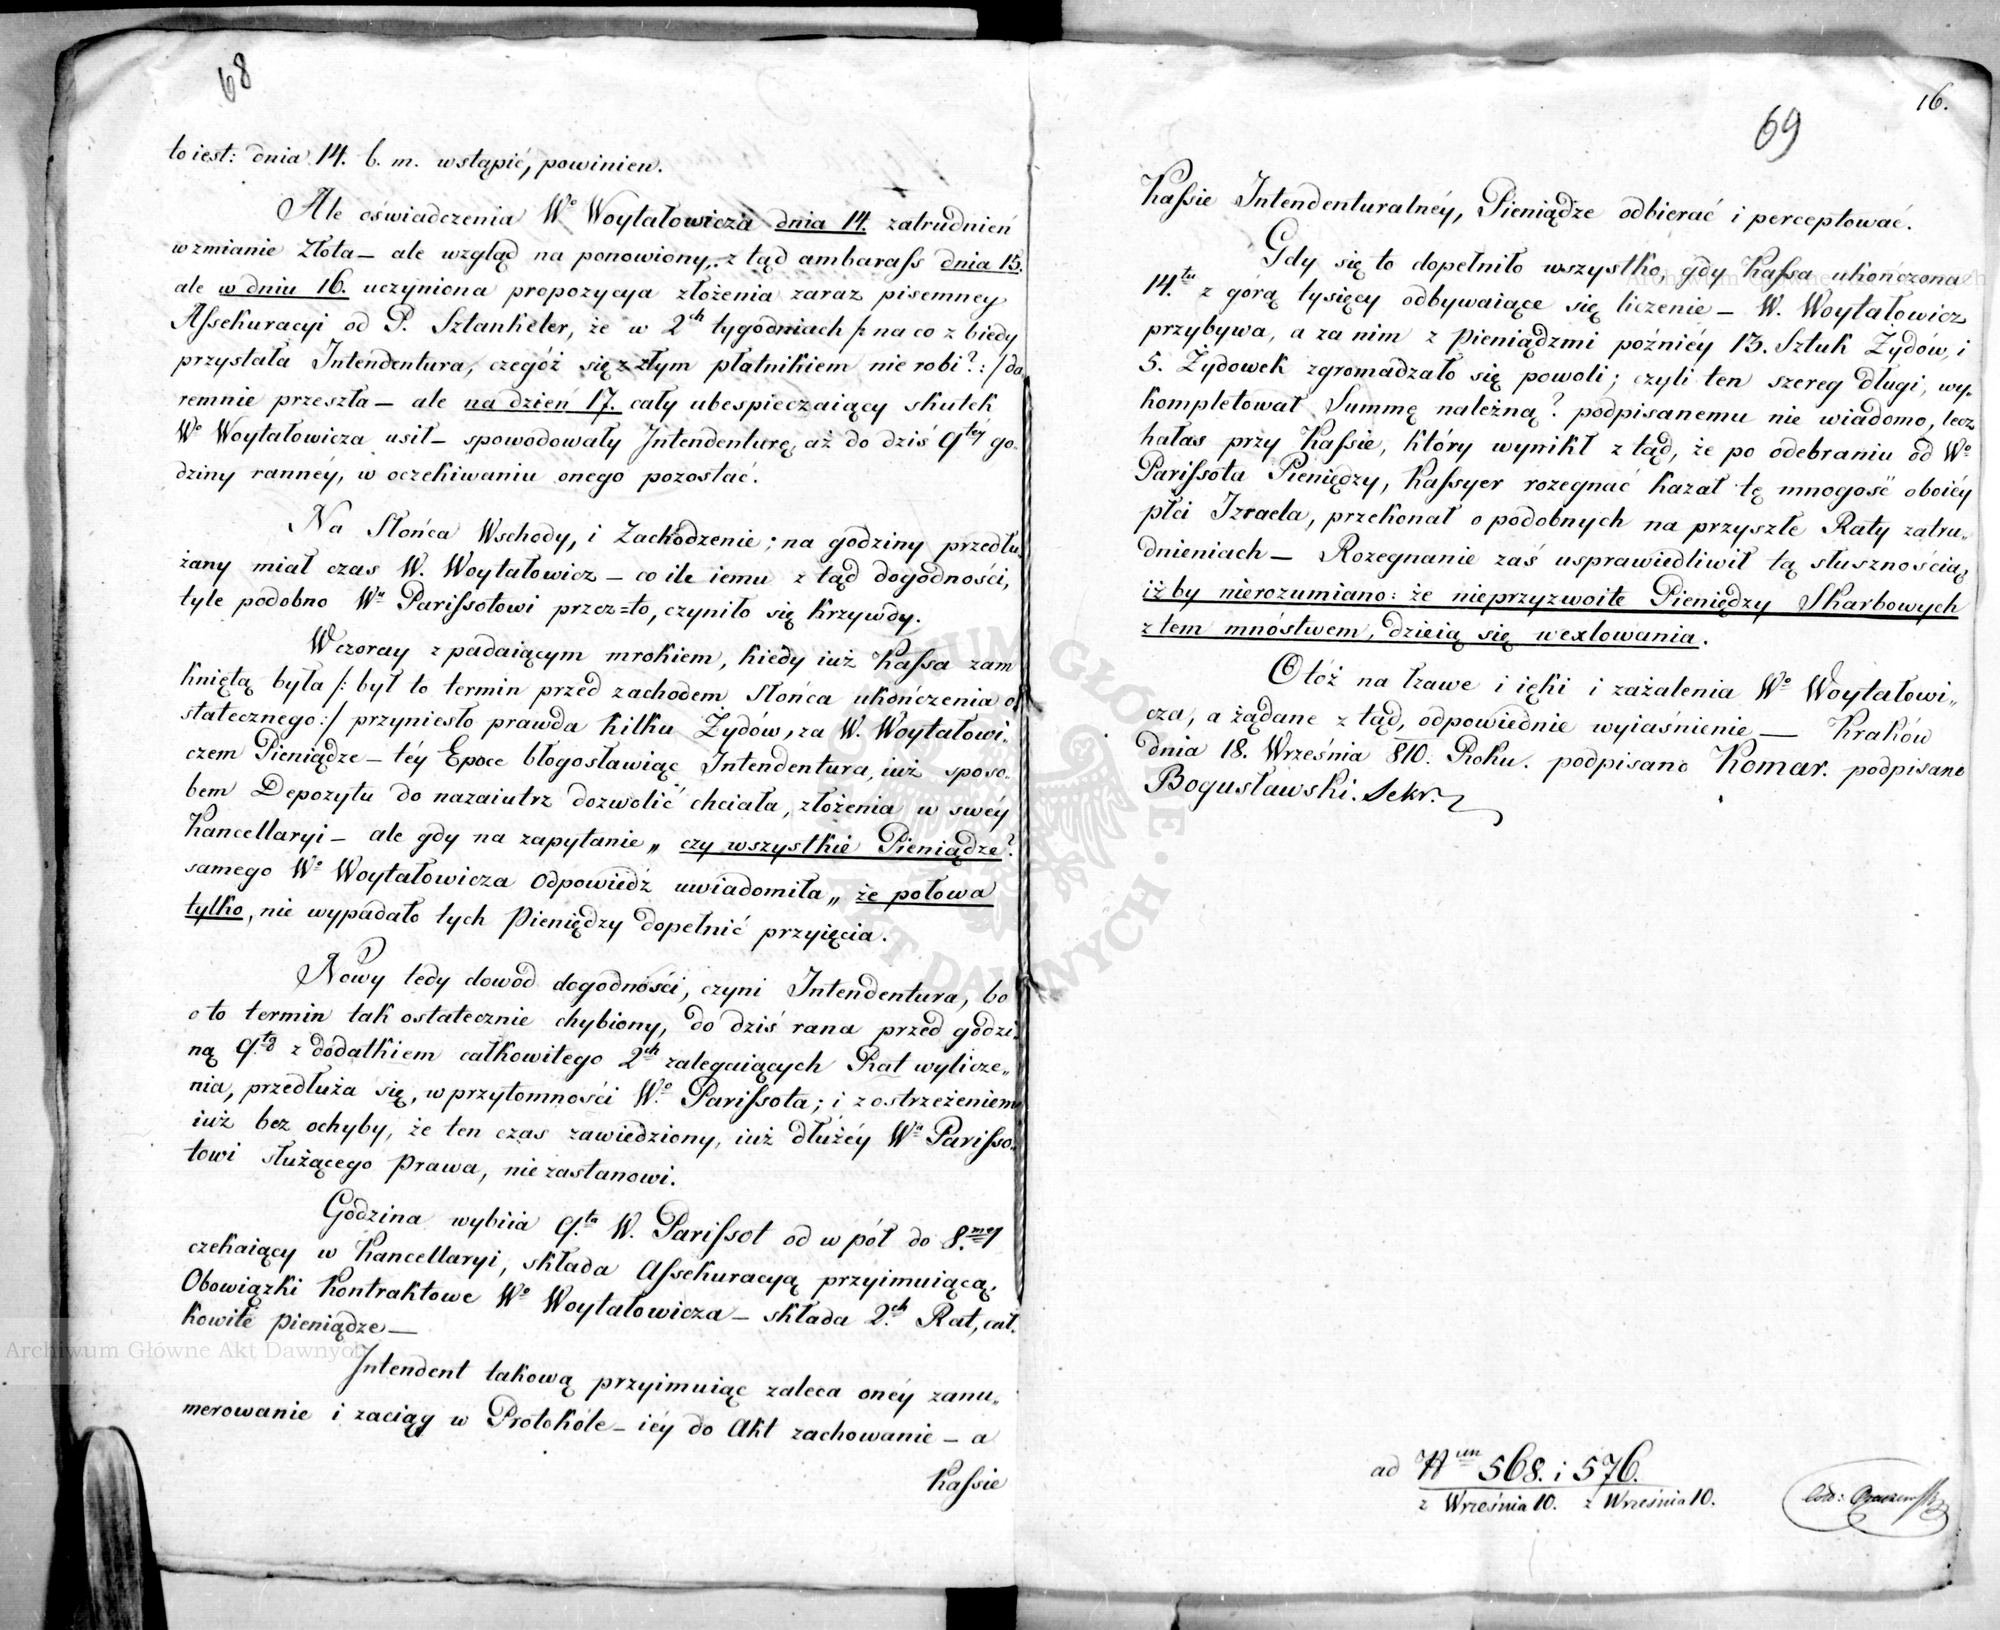 68
to iest: dnia 14. b. m. wstąpić, powinien.
Ale oświadczenia Wo Woytałowicza dnia 14. zatrudnień
w zmianie Złota — ale wzgląd na ponowiony, z tąd ambarass dnia 15.
ale w dniu 16. uczyniona propozycya złożenia zaraz pisemney
Assekuracyi od P. Sztankeler, że w 2ch tygodniach /: na co z biedy
przystała Intendentura, czegóż się z złym płatnikiem nie robi? :/ da
remnie przeszła — ale na dzień 17. cały ubespieczaiący skutek
Wo Woytałowicza usił — spowodowały Intendenturę, aż do dziś 9tey go-
dziny rannéy, w oczekiwaniu onego pozostać.
Na Słońca Wschody, i Zachodzenie; na godziny przedłu-
żany miał czas W. Woytałowicz — co ile iemu z tąd dogodności,
tyle podobno Wu Parissotowi przez=to, czyniło się krzywdy.
Wczoray z padaiącym mrokiem, kiedy iuż Kassa zam
kniętą była /: był to termin przed zachodem Słońca ukończenia o-
statecznego :/ przyniesło prawda kilku Żydów, za W. Woytałowi-
czem Pieniądze — téy Epoce błogosławiąc Intendentura, iuż sposo-
bem Depozytu do nazaiutrz dozwolić chciała, złożenia w swéy
Kancellaryi — ale gdy na zapytanie „ czy wszystkie Pieniądze?
samego Wo Woytałowicza odpowiedź uwiadomiła „ że połowa
tylko, nie wypadało tych Pieniędzy dopełnić przyięcia.
Nowy tedy dowód dogodności, czyni Intendentura, bo
oto termin tak ostatecznie chybiony, do dziś rana przed godzi-
ną 9tą z dodatkiem całkowitego 2ch zalegaiących Rat wylicze„
nia, przedłuża się, w przytomności Wo Parissota; i z ostrzeżeniem
iuż bez ochyby, że ten czas zawiedziony, iuż dłużéy Wu Parisso-
towi służącego Prawa, nie zastanowi.
Godzina wybiia 9ta W. Parissot od w pół do 8mey
czekaiący w Kancellaryi, składa Assekuracyą przyimuiącą,
Obowiązki Kontraktowe Wo Woytałowicza — składa 2ch Rat, cał-
kowite pieniądze —
Intendent takową przyimuiąc zaleca onéy zanu„
merowanie i zaciąg w Protokóle — iéy do Akt zachowanie — a
Kassie
16.
69
Kassie Intendenturalnéy, Pieniądze odbierać i perceptować.
Gdy się to dopełniło wszystko, gdy Kassa ukończona
14.tu z górą tysięcy odbywaiące się liczenie — W. Woytałowicz
przybywa, a za nim z Pieniądzmi poźniéy 13. Sztuk Żydów, i
5. Żydowek zgromadzało się powoli; czyli ten szereg długi, wy-
kompletował Summę należną? podpisanemu nie wiadomo, lecz
hałas przy Kassie, który wynikł z tąd, że po odebraniu od Wo
Parissota Pieniędzy, Kassyer rozegnać kazał tę mnogość oboiéy
płci Izraela, przekonał o podobnych na przyszłe Raty zatru„
dnieniach — Rozegnanie zaś usprawiedliwił tą słusznością,
iżby nierozumiano: że nieprzyzwoite Pieniędzy Skarbowych
z tem mnóstwem, dzieią się wexlowania.
Otóż na łzawe i ięki i zażalenia Wo Woytałowi„
cza, a żądane z tąd, odpowiednie wyiaśnienie — Kraków
dnia 18. Września 810. Roku. podpisano Komar. podpisano
Bogusławski. Sekr.
ad Num 568. i 576.
z Września 10. z Września 10.
Archiwum Główne Akt Dawnych
Archiwum Główne Akt Dawnych
ARCHIWUM GŁÓWNE AKT DAWNYCH